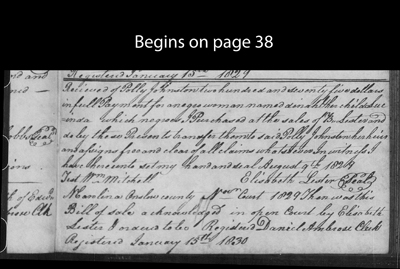 Begins on page 38
Registered January 15th 1829
Received of Polly Johnston two hundred and seventy five dollars
in full Payment for a negro woman named Dinah & her child Luc
inda which negroes I Purchased at the sale of
de by these Presents transfer them to said Polly Johnston her heirs
and assigns free and clear of all claims whatsoever In witness I
have hereunto set my hand and seal August 9th 1829
Test Wm Mitchell Elizabeth Lester (Seal)
State of North Carolina Onslow county Novr Court 1829 Then was this
Bill of sale acknowledged in open Court by Elizabeth
Lester & ordered to be Registered Daniel Ambrose Clerk
Registered January 15th 1830